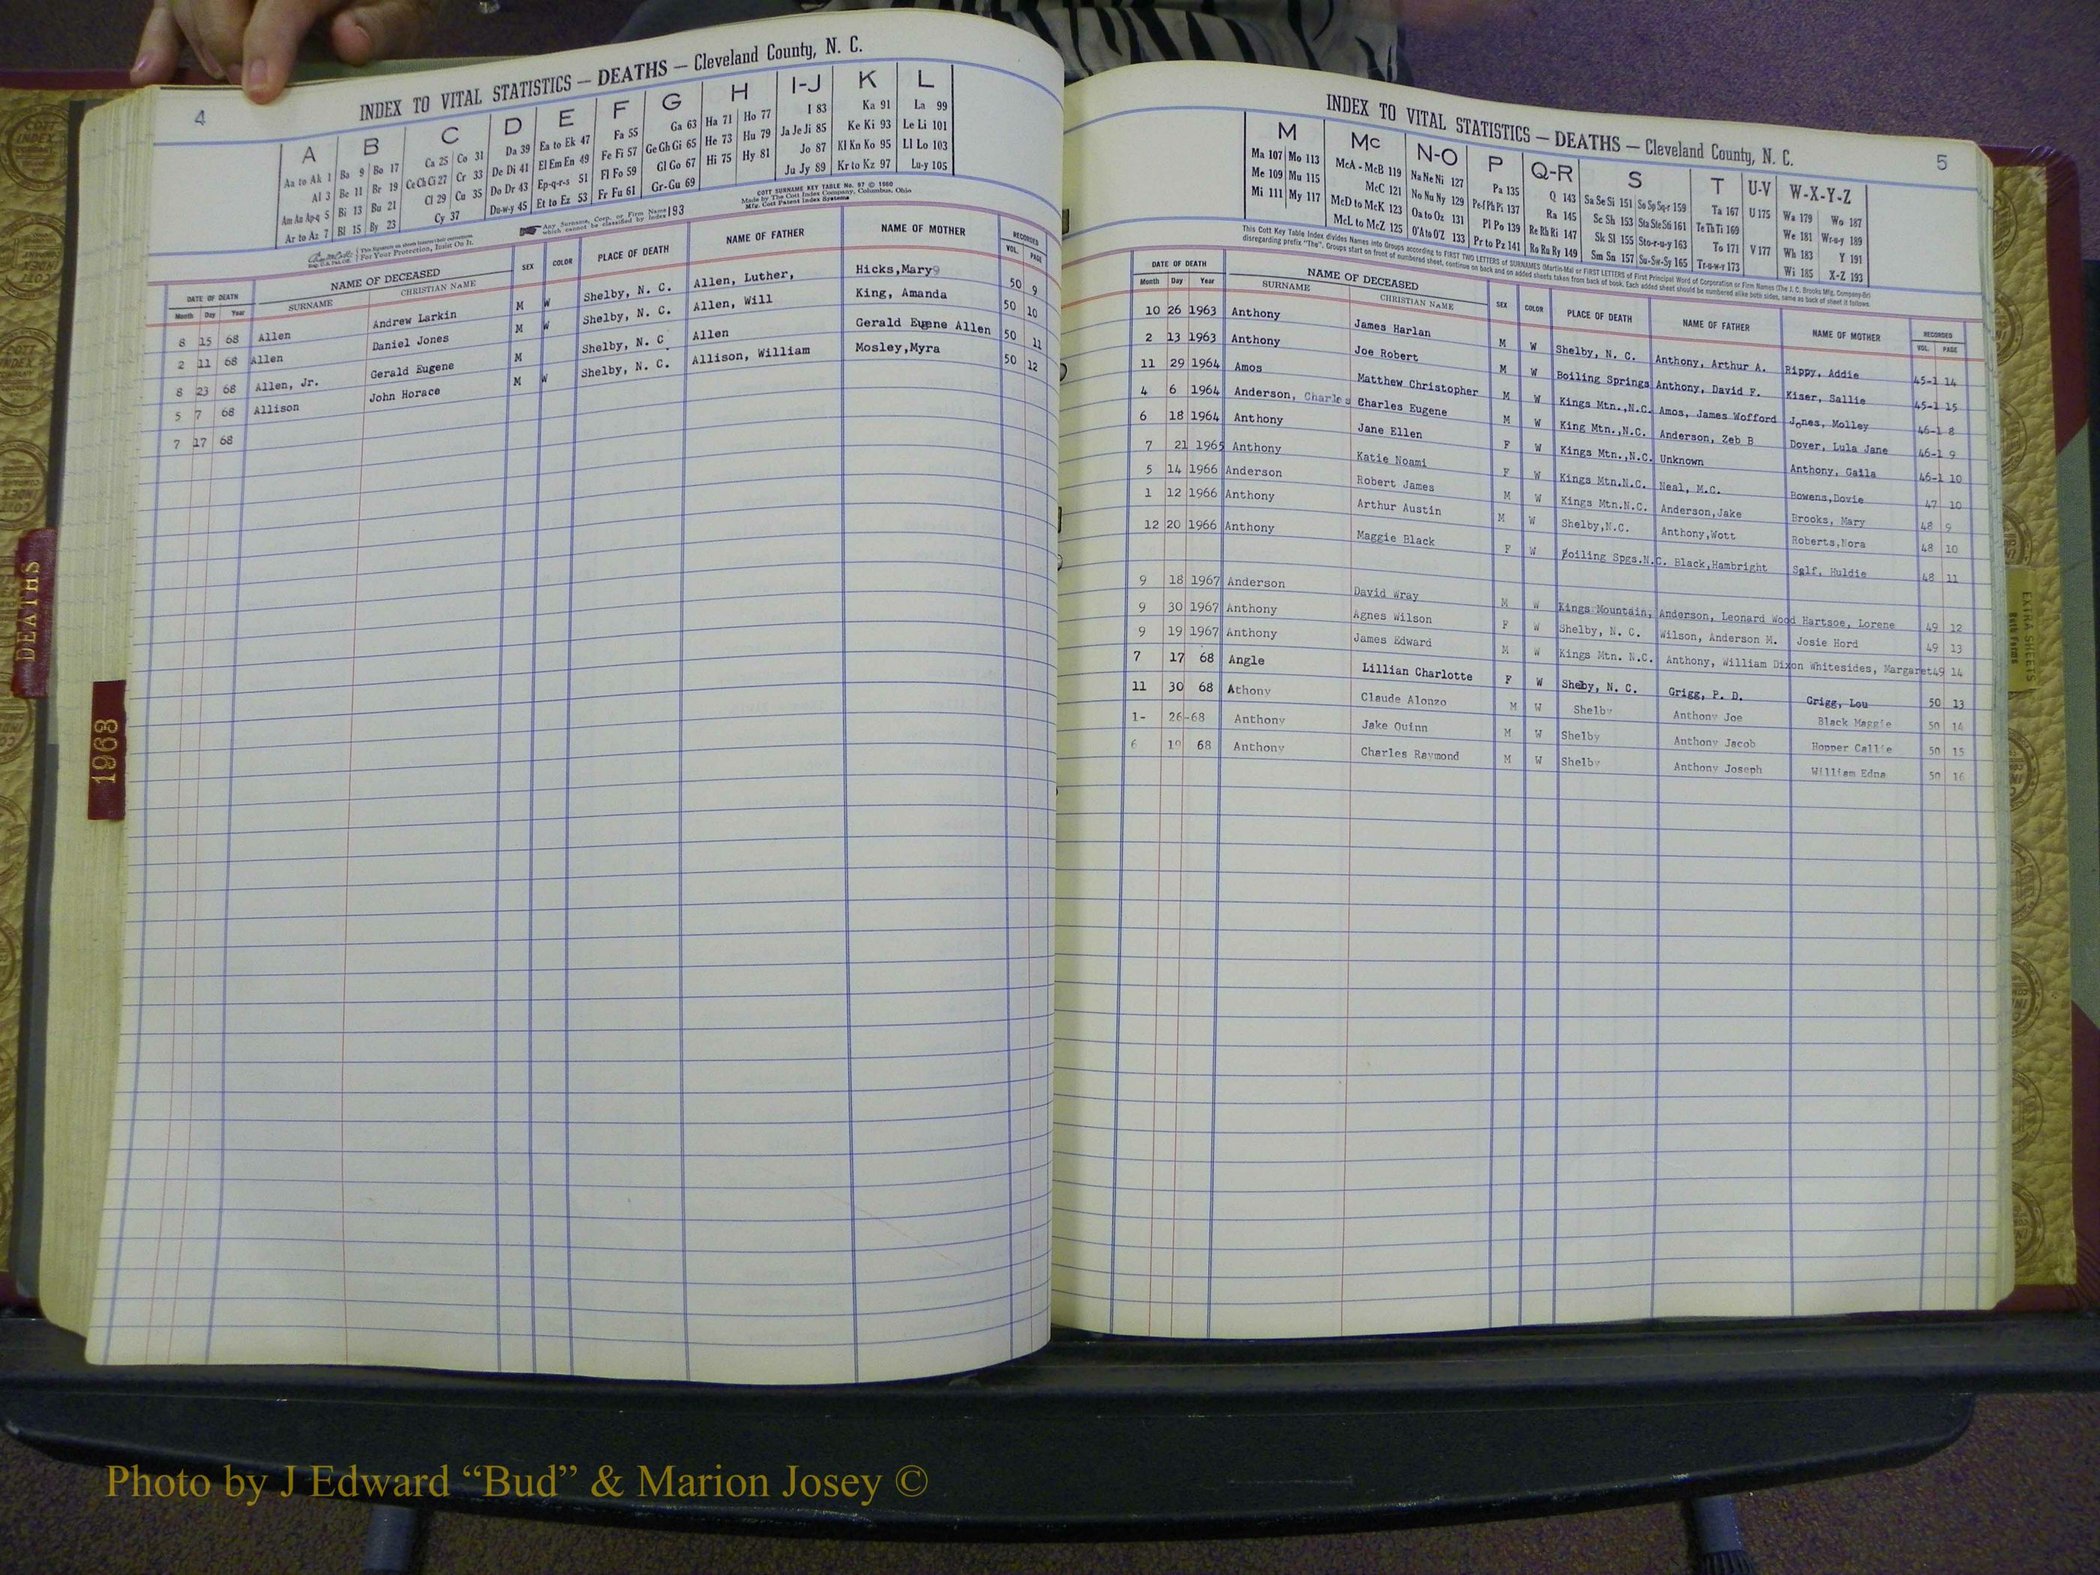 4
INDEX TO VITAL STATISTICS — DEATHS — Cleveland County, N. C.
A B C D E F G H I-J K L
Aa to Ak 1 Ba 9 Bo 17 Ca 25 Co 31 Da 39 Ea to Ek 47 Fa 55 Ga 63 Ha 71 Ho 77 I 83 Ka 91 La 99
Al 3 Be 11 Br 19 Ce Ch Ci 27 Cr 33 De Di 41 El Em En 49 Fe Fi 57 Ge Gh Gi 65 He 73 Hu 79 Ja Je Ji 85 Ke Ki 93 Le Li 101
Am An Ap-q 5 Bi 13 Bu 21 Cl 29 Cu 35 Do Dr 43 Ep-q-r-s 51 Fl Fo 59 Gl Go 67 Hi 75 Hy 81 Jo 87 Kl Kn Ko 95 Ll Lo 103
Ar to Az 7 Bl 15 By 23 Cy 37 Du-w-y 45 Et to Ez 53 Fr Fu 61 Gr-Gu 69 Ju Jy 89 Kr to Kz 97 Lu-y 105
For Your Protection, Insist On It.
Any Surname, Corp. or Firm Name which cannot be classified by Index 193
COTT SURNAME KEY TABLE No. 97 © 1960
Made by The Cott Index Company, Columbus, Ohio
Mfg. Cott Patent Index Systems
DATE OF DEATH NAME OF DECEASED SEX COLOR PLACE OF DEATH NAME OF FATHER NAME OF MOTHER RECORDED
Month Day Year SURNAME CHRISTIAN NAME VOL. PAGE
8 15 68 Allen Andrew Larkin M W Shelby, N. C. Allen, Luther, Hicks,Mary9 50 9
2 11 68 Allen Daniel Jones M W Shelby, N. C. Allen, Will King, Amanda 50 10
8 23 68 Allen, Jr. Gerald Eugene M Shelby, N. C Allen Gerald Eugene Allen 50 11
5 7 68 Allison John Horace M W Shelby, N. C. Allison, William Mosley,Myra 50 12
7 17 68
5
INDEX TO VITAL STATISTICS — DEATHS — Cleveland County, N. C.
M Mc N-O P Q-R S T U-V W-X-Y-Z
Ma 107 Mo 113 McA - McB 119 Na Ne Ni 127 Pa 135 Q 143 Sa Se Si 151 So Sp Sq-r 159 Ta 167 U 175 Wa 179 Wo 187
Me 109 Mu 115 McC 121 No Nu Ny 129 Pe-f Ph Pi 137 Ra 145 Sc Sh 153 Sta Ste Sti 161 Te Th Ti 169 We 181 Wr-u-y 189
Mi 111 My 117 McD to McK 123 Oa to Oz 131 Pl Po 139 Re Rh Ri 147 Sk Sl 155 Sto-r-u-y 163 To 171 V 177 Wh 183 Y 191
McL to McZ 125 O'A to O'Z 133 Pr to Pz 141 Ro Ru Ry 149 Sm Sn 157 Su-Sw-Sy 165 Tr-u-w-y 173 Wi 185 X-Z 193
This Cott Key Table Index divides Names into Groups according to FIRST TWO LETTERS of SURNAMES (Martin-Ma) or FIRST LETTERS of First Principal Word of Corporation or Firm Names (The J. C. Brooks Mfg. Company-Br)
disregarding prefix "The". Groups start on front of numbered sheet, continue on back and on added sheets taken from back of book. Each added sheet should be numbered alike both sides, same as back of sheet it follows.
DATE OF DEATH NAME OF DECEASED SEX COLOR PLACE OF DEATH NAME OF FATHER NAME OF MOTHER RECORDED
Month Day Year SURNAME CHRISTIAN NAME VOL. PAGE
10 26 1963 Anthony James Harlan M W Shelby, N. C. Anthony, Arthur A. Rippy, Addie 45-1 14
2 13 1963 Anthony Joe Robert M W Boiling Springs Anthony, David F. Kiser, Sallie 45-1 15
11 29 1964 Amos Matthew Christopher M W Kings Mtn.,N.C. Amos, James Wofford Jones, Molley 46-1 8
4 6 1964 Anderson, Charles Charles Eugene M W King Mtn.,N.C. Anderson, Zeb B Dover, Lula Jane 46-1 9
6 18 1964 Anthony Jane Ellen F W Kings Mtn.,N.C. Unknown Anthony, Gaila 46-1 10
7 21 1965 Anthony Katie Noami F W Kings Mtn.N.C. Neal, M.C. Bowens,Dovie 47 10
5 14 1966 Anderson Robert James M W Kings Mtn.N.C. Anderson,Jake Brooks, Mary 48 9
1 12 1966 Anthony Arthur Austin M W Shelby,N.C. Anthony,Wott Roberts,Nora 48 10
12 20 1966 Anthony Maggie Black F W Boiling Spgs.N.C. Black,Hambright Self, Huldie 48 11
9 18 1967 Anderson David Wray M W Kings Mountain, Anderson, Leonard Wood Hartsoe, Lorene 49 12
9 30 1967 Anthony Agnes Wilson F W Shelby, N. C. Wilson, Anderson M. Josie Hord 49 13
9 19 1967 Anthony James Edward M W Kings Mtn. N.C. Anthony, William Dixon Whitesides, Margaret 49 14
7 17 68 Angle Lillian Charlotte F W Shelby, N. C. Grigg, P. D. Grigg, Lou 50 13
11 30 68 Athony Claude Alonzo M W Shelby Anthony Joe Black Maggie 50 14
1- 26-68 Anthony Jake Quinn M W Shelby Anthony Jacob Hopper Callie 50 15
6 19 68 Anthony Charles Raymond M W Shelby Anthony Joseph William Edna 50 16
DEATHS
1963
EXTRA SHEETS
Photo by J Edward “Bud” & Marion Josey ©